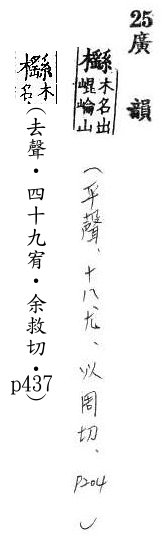 25廣韻
櫾木名出崐崘山
(平聲、十八、尤、以周切、P204)
櫾木名(去聲・四十九宥・余救切・p437)